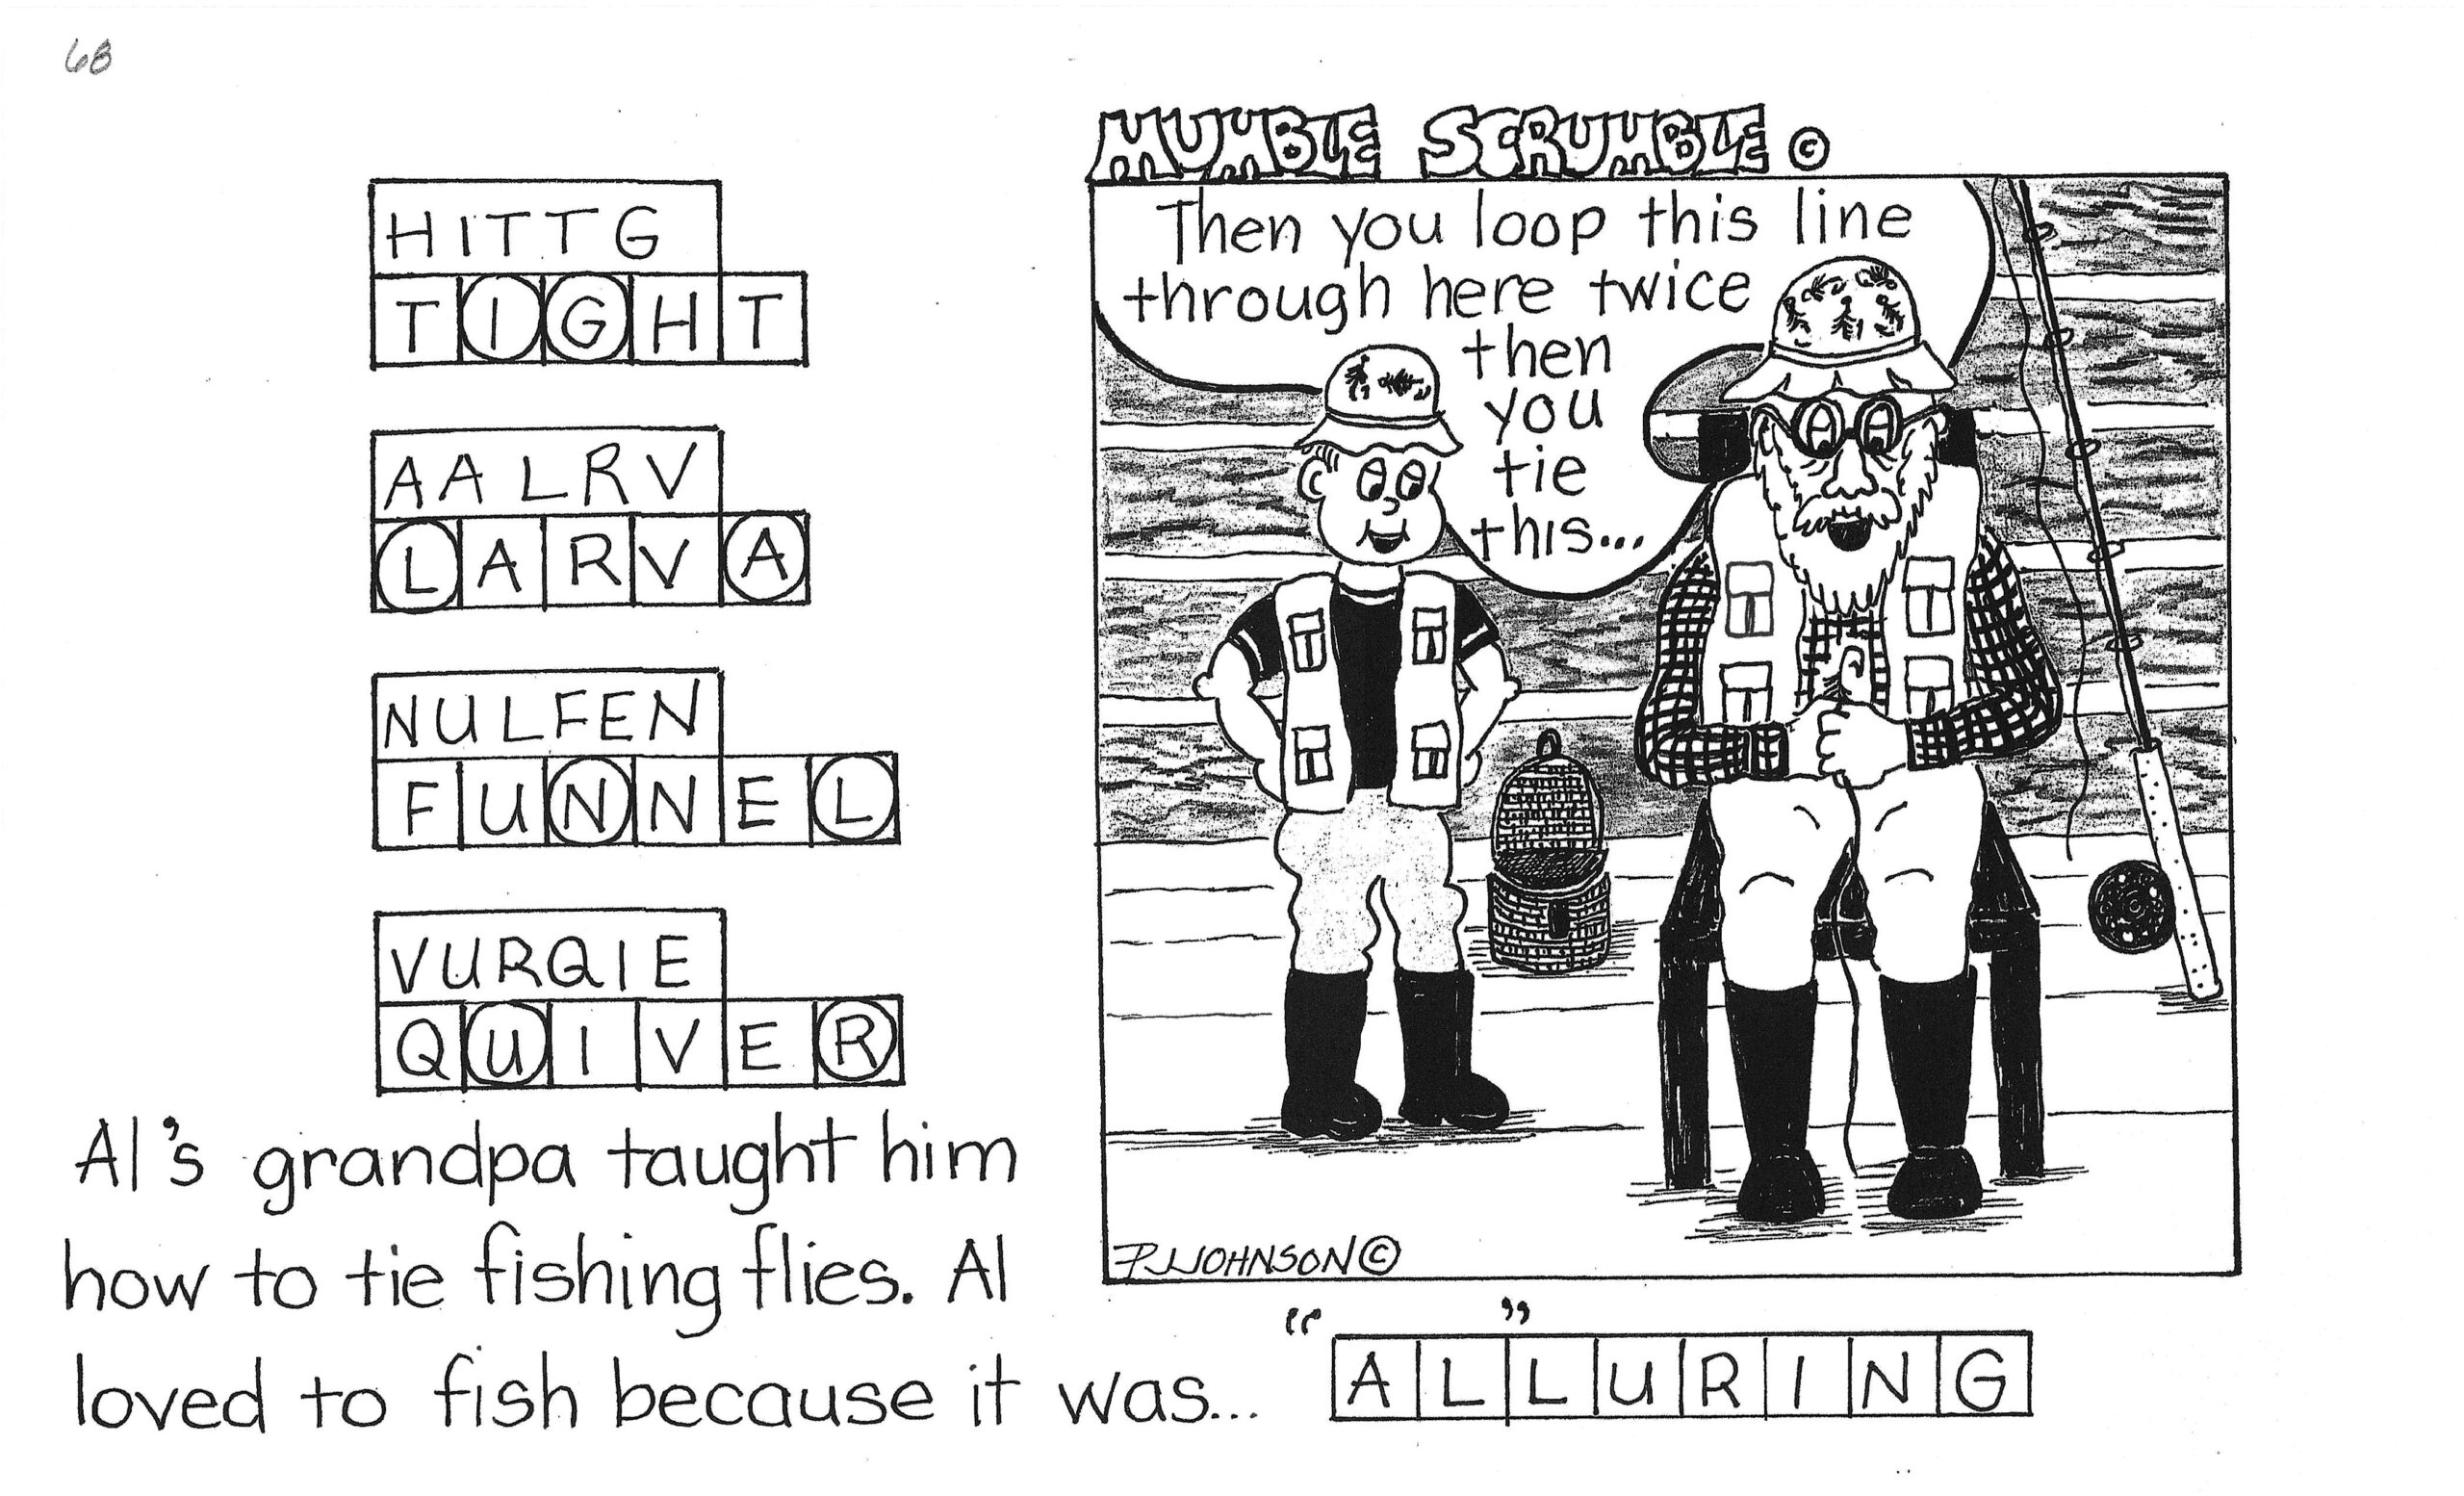 68
MUMBLE SCRUMBLE ©
HITTG
TIGHT
AALRV
LARVA
NULFEN
FUNNEL
VURQIE
QUIVER
Then you loop this line
through here twice
then
you
tie
this...
PJJOHNSON ©
Al's grandpa taught him
how to tie fishing flies. Al
loved to fish because it was... "ALLURING"